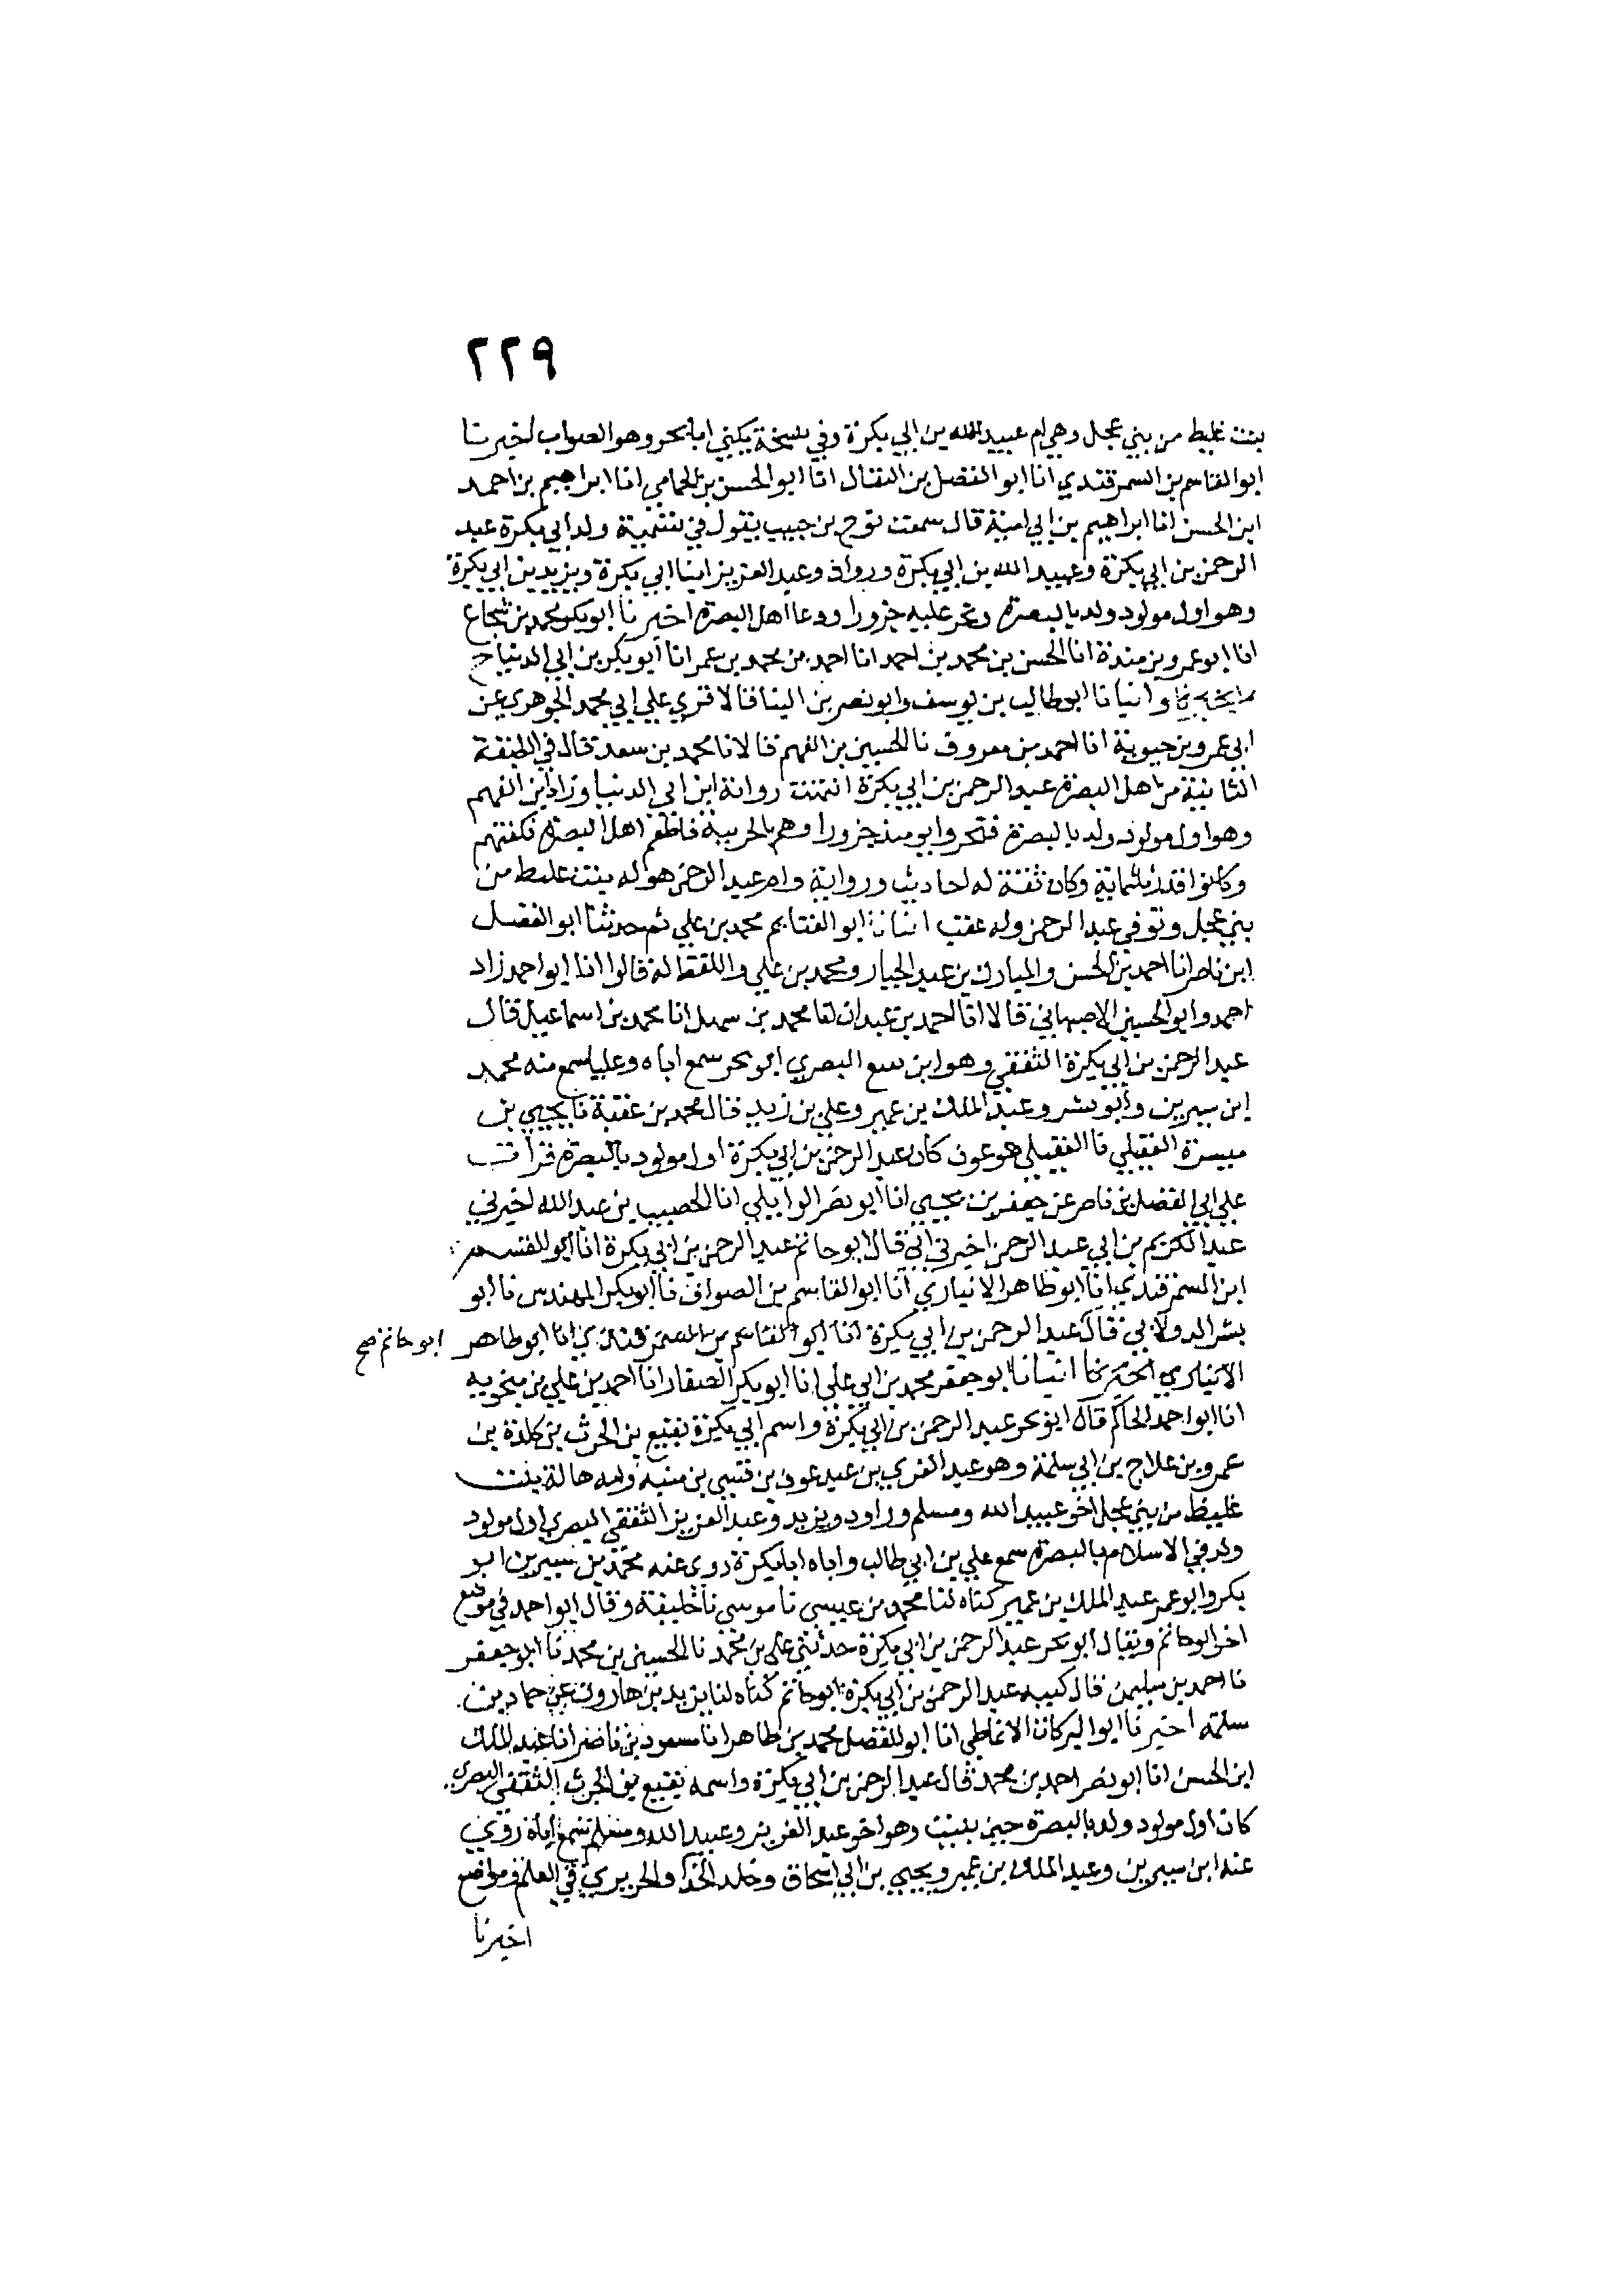 ٢٢٩
بنت غليط من بني عجل وهي ام عبيد الله بن ابي بكرة وفي نسخة يكني ابا بحر وهو الصواب اخبرنا
ابو القاسم بن السمرقندي انا ابو الفضل بن البقال انا ابو الحسن بن الحمامي انا ابراهيم بن احمد
ابن الحسن انا ابراهيم بن ابي امية قال سمعت نوح بن حبيب يقول في تسمية ولد ابي بكرة عبد
الرحمن بن ابي بكرة وعبيد الله بن ابي بكرة ورواد وعبد العزيز ابنا ابي بكرة ويزيد بن ابي بكرة
وهو اول مولود ولد بالبصرة ونحر عليه جزورا ودعا اهل البصرة اخبرنا ابو بكر محمد بن شجاع
انا ابو عمرو بن مندة انا الحسن بن محمد بن احمد انا احمد بن محمد بن عمر انا ابو بكر بن ابي الدنيا ح
وانبانا ابو طالب بن يوسف وابو نصر بن البنا قالا قري علي ابي محمد الجوهري عن
ابي عمر بن حيوية انا احمد بن معروف نا الحسين بن الفهم قالا نا محمد بن سعد قال في الطبقة
الثانية من اهل البصرة عبد الرحمن بن ابي بكرة انتهت رواية ابن ابي الدنيا وزاد ابن الفهم
وهو اول مولود ولد بالبصرة فنحروا يومئذ جزورا وهم بالخريبة فاطعم اهل البصرة فكفتهم
وكانوا قدر ثلثماية وكان ثقة له احاديث ورواية وام عبد الرحمن هولة بنت غليط من
بني عجل وتوفي عبد الرحمن وله عقب انبانا ابو الغنايم محمد بن علي ثم حدثنا ابو الفضل
ابن ناصر انا احمد بن الحسن والمبارك بن عبد الجبار ومحمد بن علي واللفظ له قالوا انا ابو احمد زاد
احمد وابو الحسين الاصبهاني قالا انا احمد بن عبدان انا محمد بن سهل انا محمد بن اسماعيل قال
عبد الرحمن بن ابي بكرة الثقفي وهو ابن نفيع البصري ابو بحر سمع اباه وعليا سمع منه محمد
ابن سيرين وأبو بشر وعبد الملك بن عمير وعلي بن زيد قال محمد بن عقبة نا يحيي بن
ميسرة العقيلي نا العقيلي هو عون كان عبد الرحمن بن ابي بكرة اول مولود بالبصرة قرات
علي ابي الفضل بن ناصر عن جعفر بن يحيي انا ابو نصر الوايلي انا الخصيب بن عبد الله اخبرني
عبد الكريم بن ابي عبد الرحمن اخبرني ابي قال ابو حاتم عبد الرحمن بن ابي بكرة انا ابو القسم
ابن السمرقندي انا ابو طاهر الانباري انا ابو القاسم بن الصواف نا ابو بكر المهندس نا ابو
بشر الدولابي قال عبد الرحمن بن ابي بكرة انا ابو القاسم بن السمرقندي انا ابو طاهر
ابو حاتم صح
الانباري انبانا ابو جعفر محمد بن ابي علي انا ابو بكر الصفار انا احمد بن علي بن منجويه
انا ابو احمد الحاكم قال ابو بحر عبد الرحمن بن ابي بكرة واسم ابي بكرة نفيع بن الحرث بن كلدة بن
عمرو بن علاج بن ابي سلمة وهو عبد العزي بن عبد عوف بن قسي بن منبه وامه هالة بنت
غليظ من بني عجل اخو عبيد الله ومسلم ورواد ويزيد وعبد العزيز الثقفي البصري اول مولود
ولد في الاسلام بالبصرة سمع علي بن ابي طالب واباه ابا بكرة روي عنه محمد بن سيرين ابو
بكر وابو عمر عبد الملك بن عمير كناه لنا محمد بن عيسي نا موسي نا خليفة وقال ابو احمد في موضع
اخر ابو حاتم ويقال ابو بحر عبد الرحمن بن ابي بكرة حدثني علي بن محمد نا الحسين بن محمد نا ابو جعفر
نا احمد بن سليمن قال كنية عبد الرحمن بن ابي بكرة ابو حاتم كناه لنا يزيد بن هارون عن حماد بن
سلمة اخبرنا ابو البركات الانماطي انا ابو الفضل محمد بن طاهر انا مسعود بن ناصر انا عبد الملك
ابن الحسن انا ابو نصر احمد بن محمد قال عبد الرحمن بن ابي بكرة واسمه نفيع بن الحرث الثقفي البصري
كان اول مولود ولد بالبصرة حين بنيت وهو اخو عبد العزيز وعبيد الله ومسلم سمع اباه روي
عنه ابن سيرين وعبد الملك بن عمير ويحيي بن ابي اسحاق وخلد الحذا والجريري في العلم ومواضع
اخبرنا